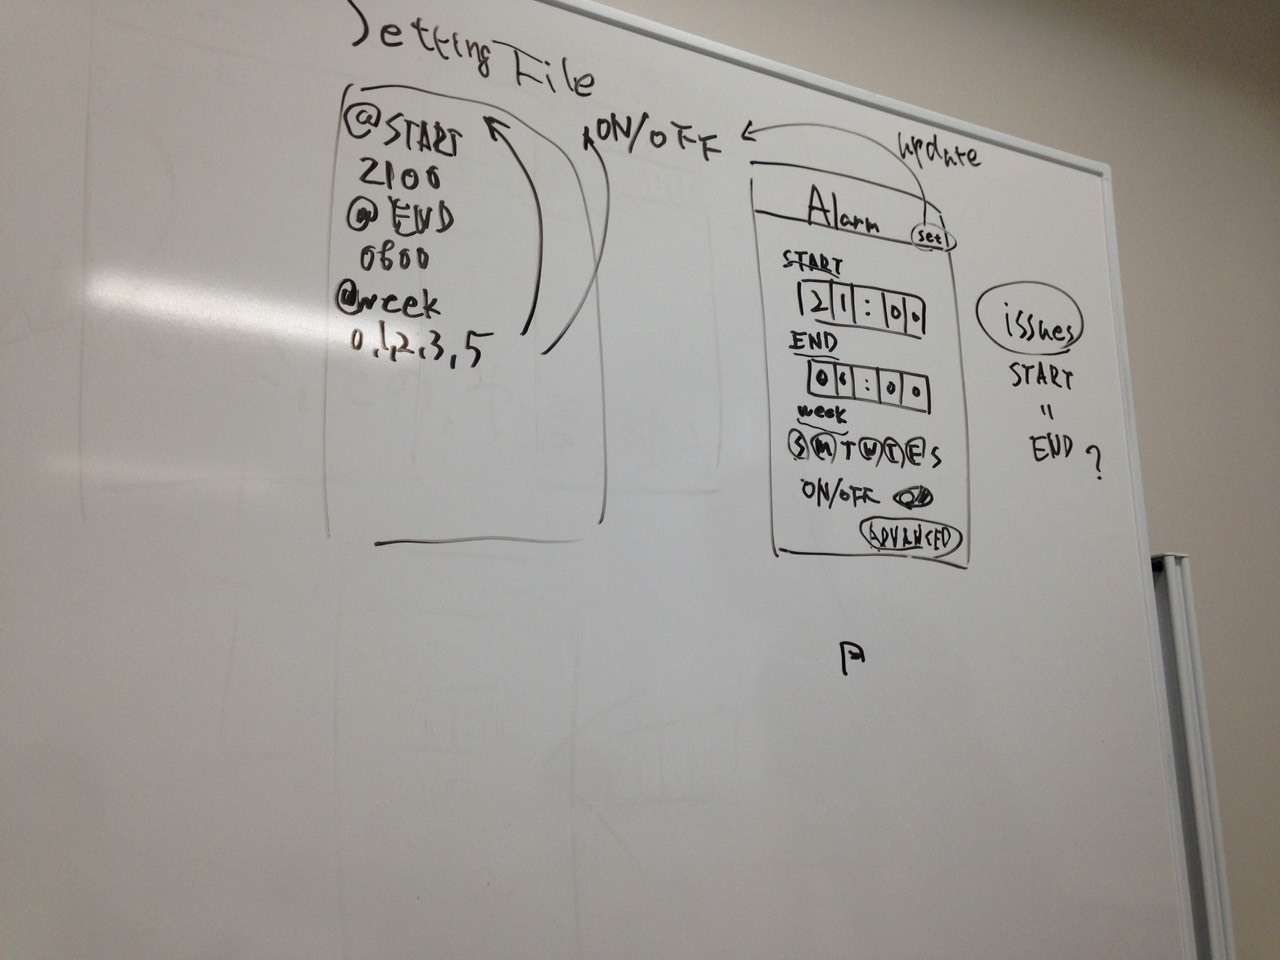 Setting File
@START
2100
@END
0600
@week
0,1,2,3,5
ON/OFF
update
Alarm
set
START
21:00
END
06:00
week
S M T W T F S
ON/OFF
ADVANCED
issues
START
=
END?